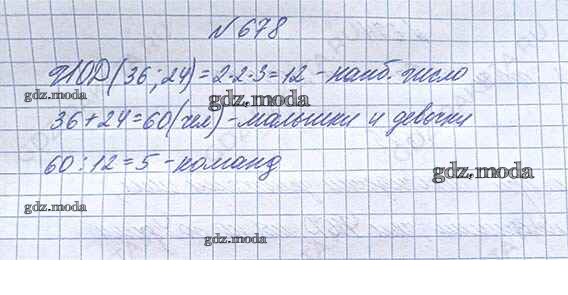 № 678
НОД(36;24)=2·2·3=12 - наиб. число
gdz.moda
gdz.moda
36+24=60(чел) - мальчики и девочки
gdz.moda
60:12=5 - команд
gdz.moda
gdz.moda
gdz.moda